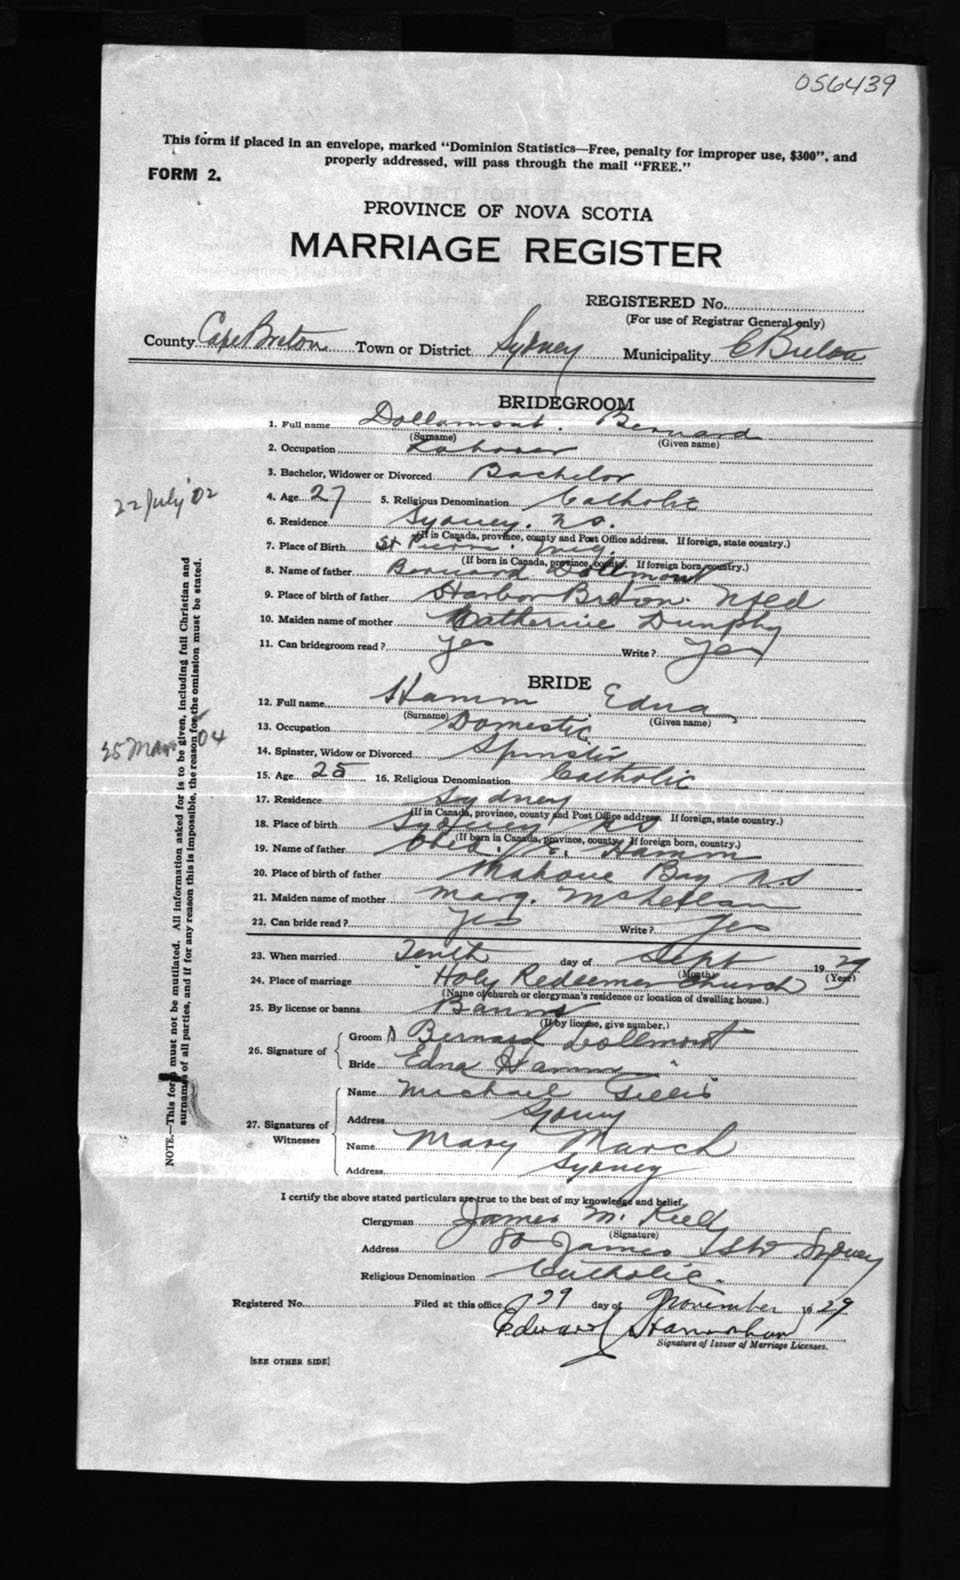 056439
This form if placed in an envelope, marked "Dominion Statistics—Free, penalty for improper use, $300", and
properly addressed, will pass through the mail "FREE."
FORM 2.
PROVINCE OF NOVA SCOTIA
MARRIAGE REGISTER
REGISTERED No.
(For use of Registrar General only)
County Cape Breton Town or District Sydney Municipality C Breton
BRIDEGROOM
1. Full name Dollamont. Bernard
(Surname) (Given name)
2. Occupation Labourer
3. Bachelor, Widower or Divorced Bachelor
22 July '02
4. Age 27 5. Religious Denomination Catholic
6. Residence Sydney. N.S.
(If in Canada, province, county and Post Office address. If foreign, state country.)
7. Place of Birth St Pierre. Miq.
(If born in Canada, province, county. If foreign born, country.)
8. Name of father Bernard Dollmont
9. Place of birth of father Harbor Breton. Nfld
10. Maiden name of mother Catherine Dunphy
11. Can bridegroom read? yes Write? yes
BRIDE
12. Full name Hamm Edna
(Surname) (Given name)
13. Occupation Domestic
25 Mar 04
14. Spinster, Widow or Divorced Spinster
15. Age 25 16. Religious Denomination Catholic
17. Residence Sydney
(If in Canada, province, county and Post Office address. If foreign, state country.)
18. Place of birth Sydney NS
(If born in Canada, province, county. If foreign born, country.)
19. Name of father Hamm
20. Place of birth of father Mahone Bay N.S
21. Maiden name of mother Marg. McLellan
22. Can bride read? yes Write? yes
23. When married Tenth day of Sept 1929
(Month) (Year)
24. Place of marriage Holy Redeemer Church
(Name of church or clergyman's residence or location of dwelling house.)
25. By license or banns Banns
(If by license, give number.)
26. Signature of
Groom Bernard Dollmont
Bride Edna Hamm
27. Signatures of Witnesses
Name Michael Gillis
Address Sydney
Name Mary March
Address Sydney
NOTE.—This form must not be mutilated. All information asked for is to be given, including full Christian and
surnames of all parties, and if for any reason this is impossible, the reason for the omission must be stated.
I certify the above stated particulars are true to the best of my knowledge and belief.
Clergyman James M. Kiely
(Signature)
Address 80 James St. Sydney
Religious Denomination Catholic.
Registered No. Filed at this office 29 day of November 1929
Edward Hanrahan
Signature of Issuer of Marriage Licenses.
[SEE OTHER SIDE]